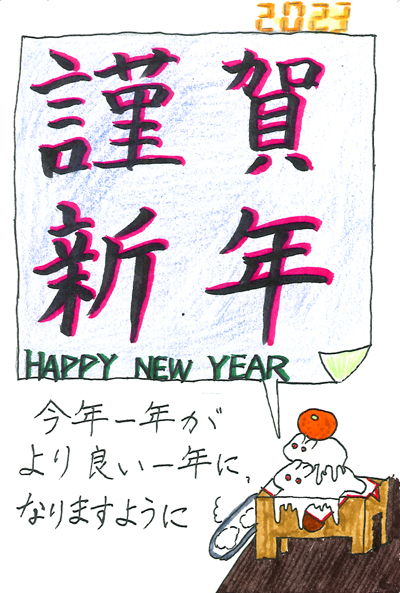 2023
謹賀
新年
HAPPY NEW YEAR
今年一年が
より良い一年に、
なりますように